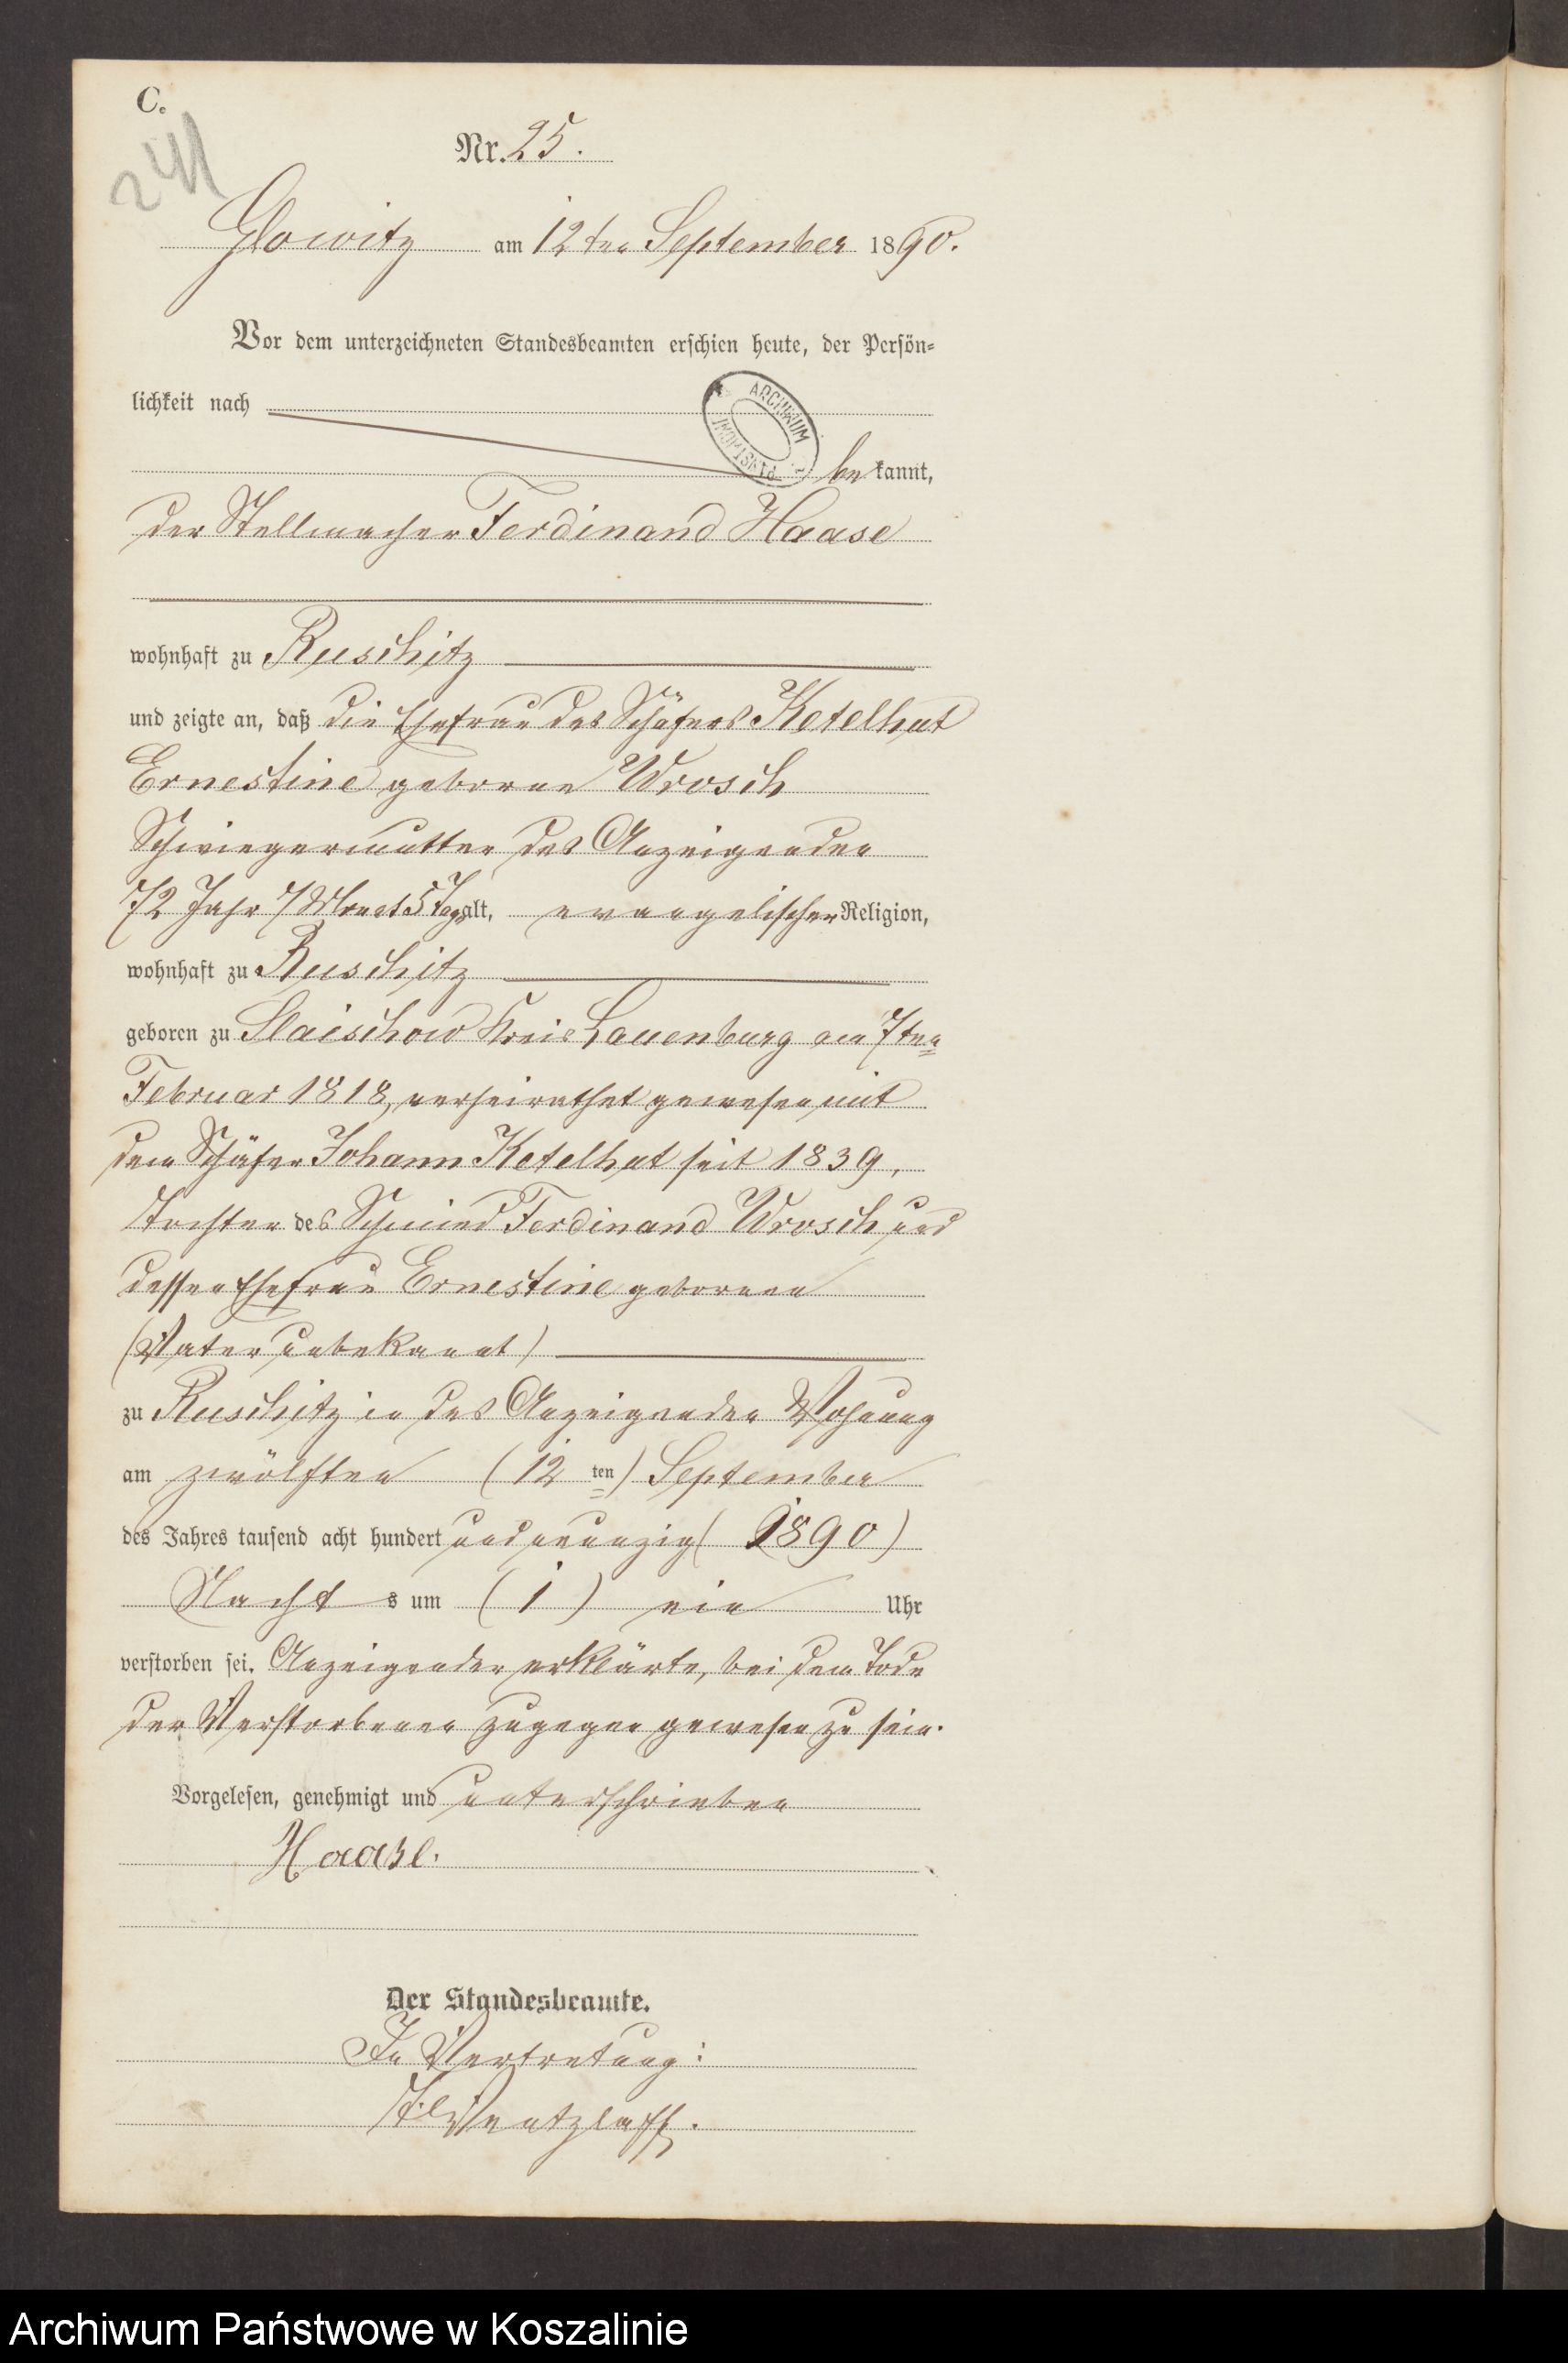 C.
241
Nr. 25.
Glowitz am 12ten September 1890.
Vor dem unterzeichneten Standesbeamten erschien heute, der Persön-
lichkeit nach
ARCHIWUM
bekannt,
der Stellmacher Ferdinand Haase
wohnhaft zu Ruschitz
und zeigte an, daß die Ehefrau des Schäfers Ketelhut
Ernestine geborne Wrosch
Schwiegermutter des Anzeigenden
72 Jahr 7 Monat 5 Tage alt, evangelischer Religion,
wohnhaft zu Ruschitz
geboren zu Slaischow Kreis Lauenburg am 7ten
Februar 1818, verheirathet gewesen mit
dem Schäfer Johann Ketelhut seit 1839,
Tochter des Schmied Ferdinand Wrosch und
dessen Ehefrau Ernestine geborenen
(Vater unbekannt)
zu Ruschitz in des Anzeigenden Wohnung
am zwölften (12 ten) September
des Jahres tausend acht hundert und neunzig (1890)
Nacht s um (1) ein Uhr
verstorben sei. Anzeigender erklärte, bei dem Tode
der Verstorbenen zugegen gewesen zu sein.
Vorgelesen, genehmigt und unterschrieben
Haase.
Der Standesbeamte.
In Vertretung:
Wentzlaff.
Archiwum Państwowe w Koszalinie